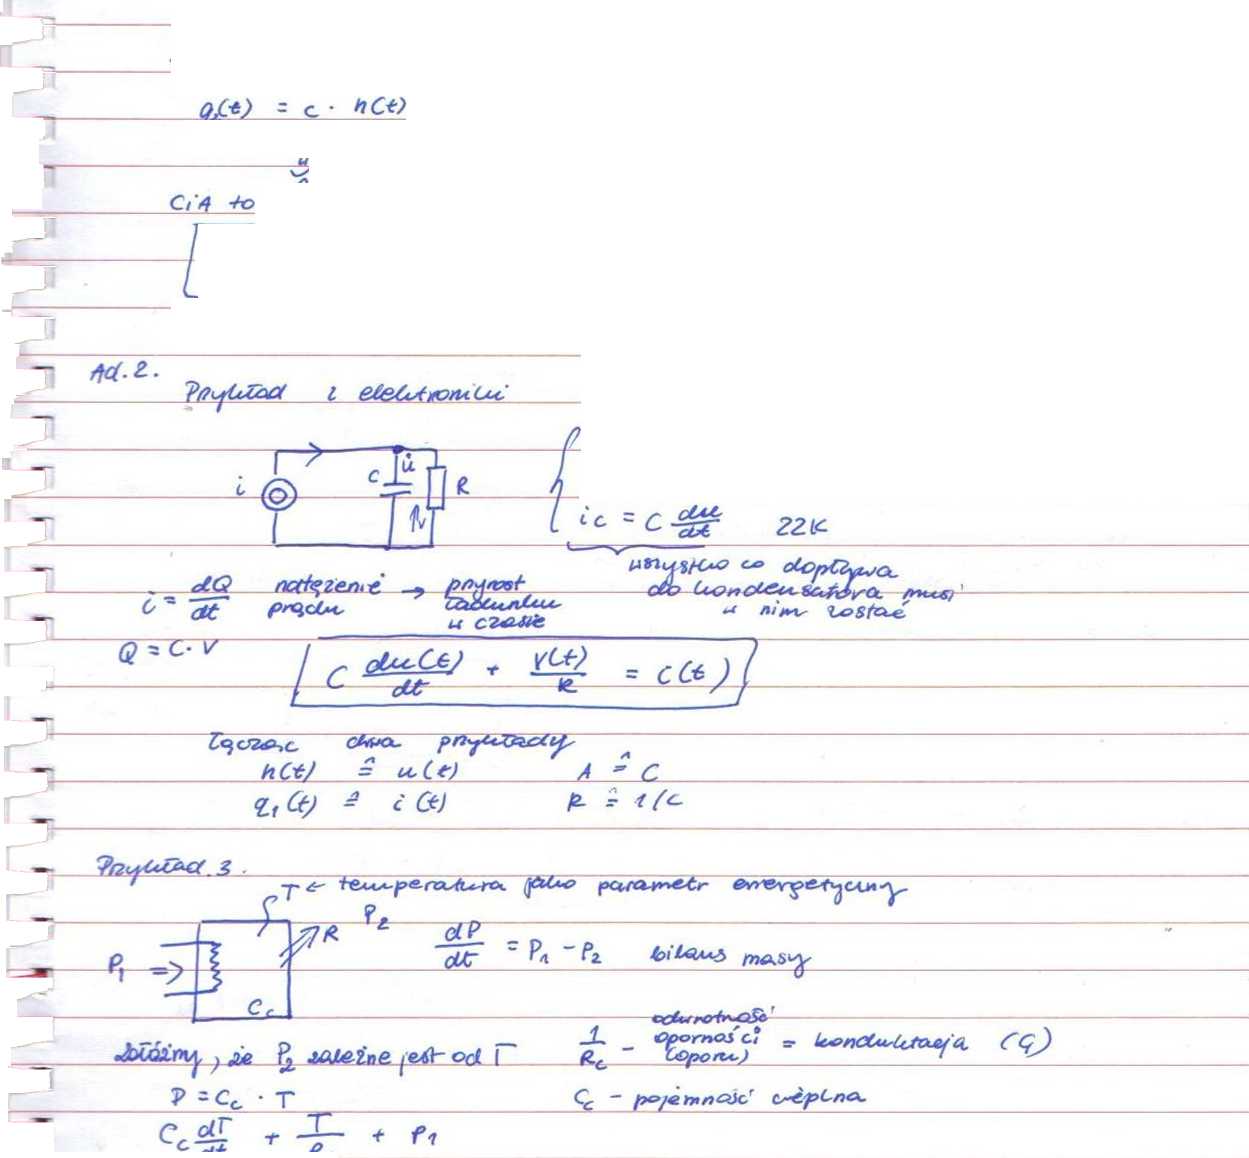 q₁(t) = c · h(t)
C i A to
Ad. 2.
Przykład z elektroniki
i C u R
ic = C du/dt 22K
wszystko co dopływa
do kondensatora musi
w nim zostać
i = dQ/dt natężenie prądu → przyrost ładunku w czasie
Q = C · V
C du(t)/dt + V(t)/R = i(t)
łącząc dwa przykłady
h(t) ≙ u(t) A ≙ C
q₁(t) ≙ i(t) R ≙ 1/c
Przykład 3.
T ← temperatura jako parametr energetyczny
P₁ ⇒ R P₂ Cc
dP/dt = P₁ - P₂ bilans masy
załóżmy, że P₂ zależne jest od T
1/Rc - odwrotność oporności (oporu) = konduktacja (G)
P = Cc · T
Cc - pojemność cieplna
Cc dT/dt + T/ + P₁